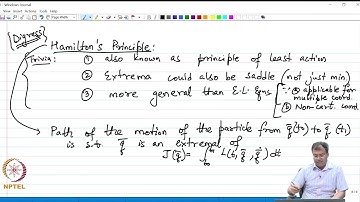 Windows Journal
Digress
Hamilton's Principle:
Trivia: ① also known as principle of least action
② Extrema could also be saddle (not just min)
③ more general than E.L. Eqns ∵ ⓐ applicable for multiple coord.
ⓑ Non-cart. coord.
Path of the motion of the particle from q̄(t₀) to q̄(t₁)
is s.t. q̄ is an extremal of
J(q̄) = ∫ L(t, q̄, q̄̇) dt
NPTEL